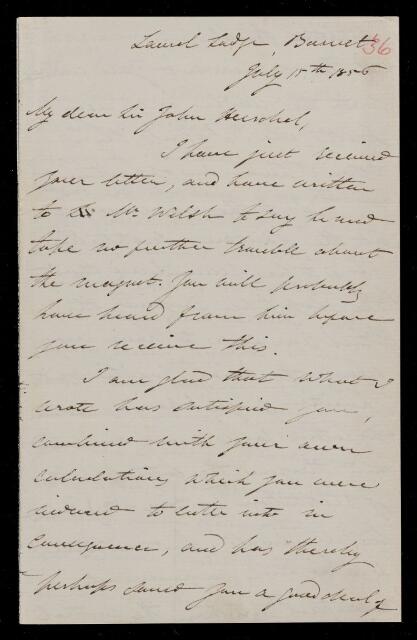 Laurel Lodge, Barnet
36
July 15th 1856
My dear Sir John Herschel,
I have just received
your letter, and have written
to Mr Welsh to say he need
take no further trouble about
the magnet. You will probably
have heard from him before
you receive this.
I am glad that what I
wrote has satisfied you,
combined with your own
calculation, which you were
induced to enter into in
consequence, and has thereby
perhaps saved you a good deal of